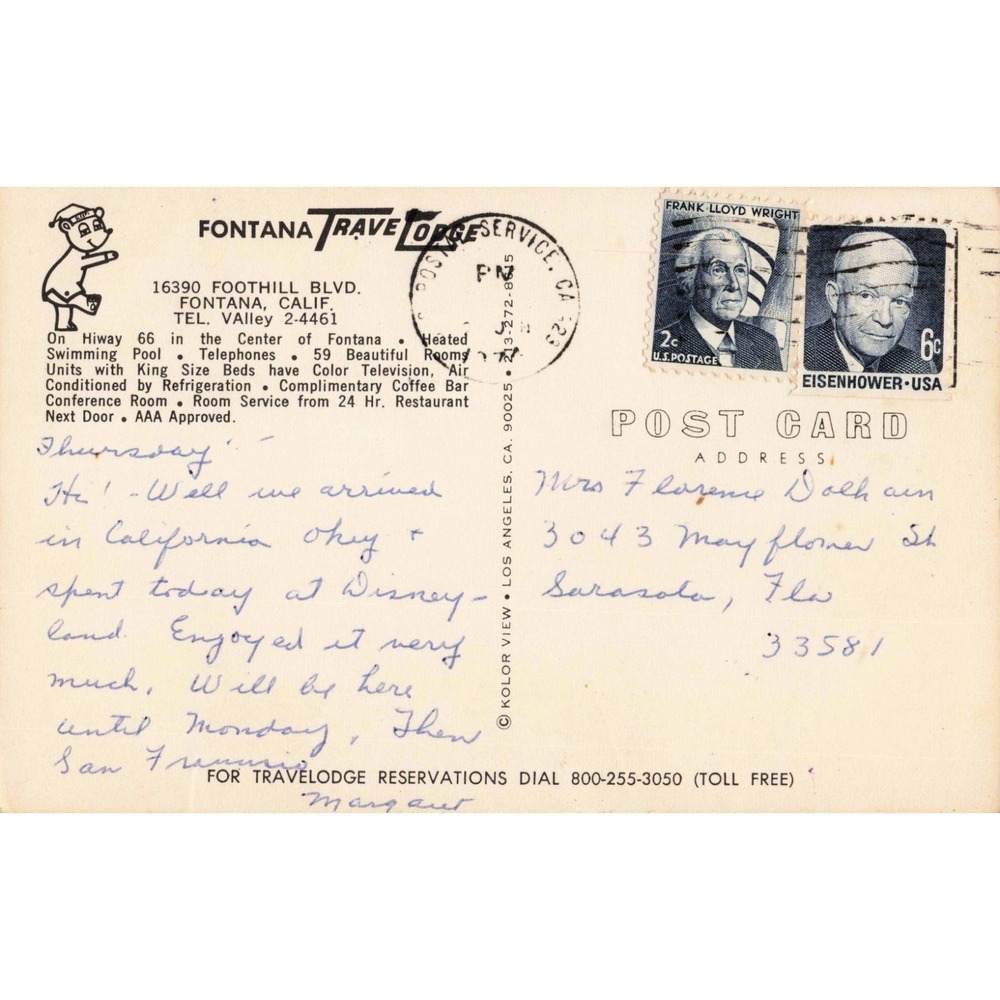 FONTANA TRAVELODGE
16390 FOOTHILL BLVD.
FONTANA, CALIF.
TEL. VAlley 2-4461
On Hiway 66 in the Center of Fontana • Heated
Swimming Pool • Telephones • 59 Beautiful Rooms
Units with King Size Beds have Color Television, Air
Conditioned by Refrigeration • Complimentary Coffee Bar
Conference Room • Room Service from 24 Hr. Restaurant
Next Door • AAA Approved.
Thursday
Hi! - Well we arrived
in California okey +
spent today at Disney-
land. Enjoyed it very
much. Will be here
until Monday, Then
San Francisco
Margaret
© KOLOR VIEW • LOS ANGELES, CA. 90025 •
POSTAL SERVICE, CA
PM
FRANK LLOYD WRIGHT
2c
U.S. POSTAGE
6c
EISENHOWER • USA
POST CARD
ADDRESS
Mrs Florence
3043 Mayflower St
Sarasota, Fla
33581
FOR TRAVELODGE RESERVATIONS DIAL 800-255-3050 (TOLL FREE)